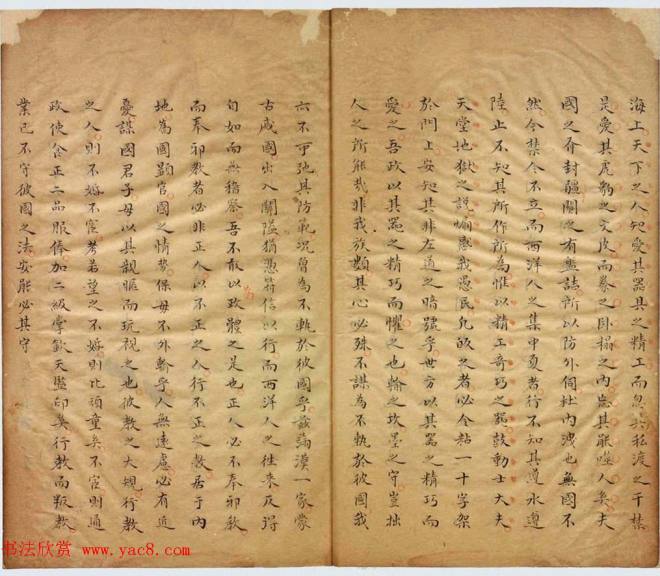 海上天下之人知愛其器具之精工而忽其私渡之干禁
是愛其虎豹之文皮而豢之卧榻之内忘其能噬人矣夫
國之有封疆關之有盤詰所以防外伺杜内洩也無國不
然今禁令不立而西洋人之集中夏者行不知其遵水遵
陸止不知其所作所為惟以精工奇巧之器鼓動士大夫
天堂地獄之說煽惑我愚民凡皈之者必令粘一十字架
於門上安知其非左道之暗號乎世方以其器之精巧而
愛之吾政以其器之精巧而懼之也輸之攻墨之守豈拙
人之所能哉非我族類其心必殊不謀為不軌於彼國我
亦不可弛其防範況曾為不軌於彼國乎茲滿漢一家蒙
古咸國出入關隘猶憑符信以行而西洋人之往來反得
自如而無稽察吾不敢以政體之是也正人必不奉邪教
而奉邪教者必非正人以不正之人行不正之教居于内
地為國顯官國之情勢保毋不外輸乎人無遠慮必有近
憂謀國君子毋以其親暱而玩視之也彼教之大規行教
之人則不婚不宦考若望之不婚則比頑童矣不宦則通
政使食正二品服俸加二級掌欽天監印矣行教而叛教
業已不守彼國之法安能必其守
书法欣赏 www.yac8.com